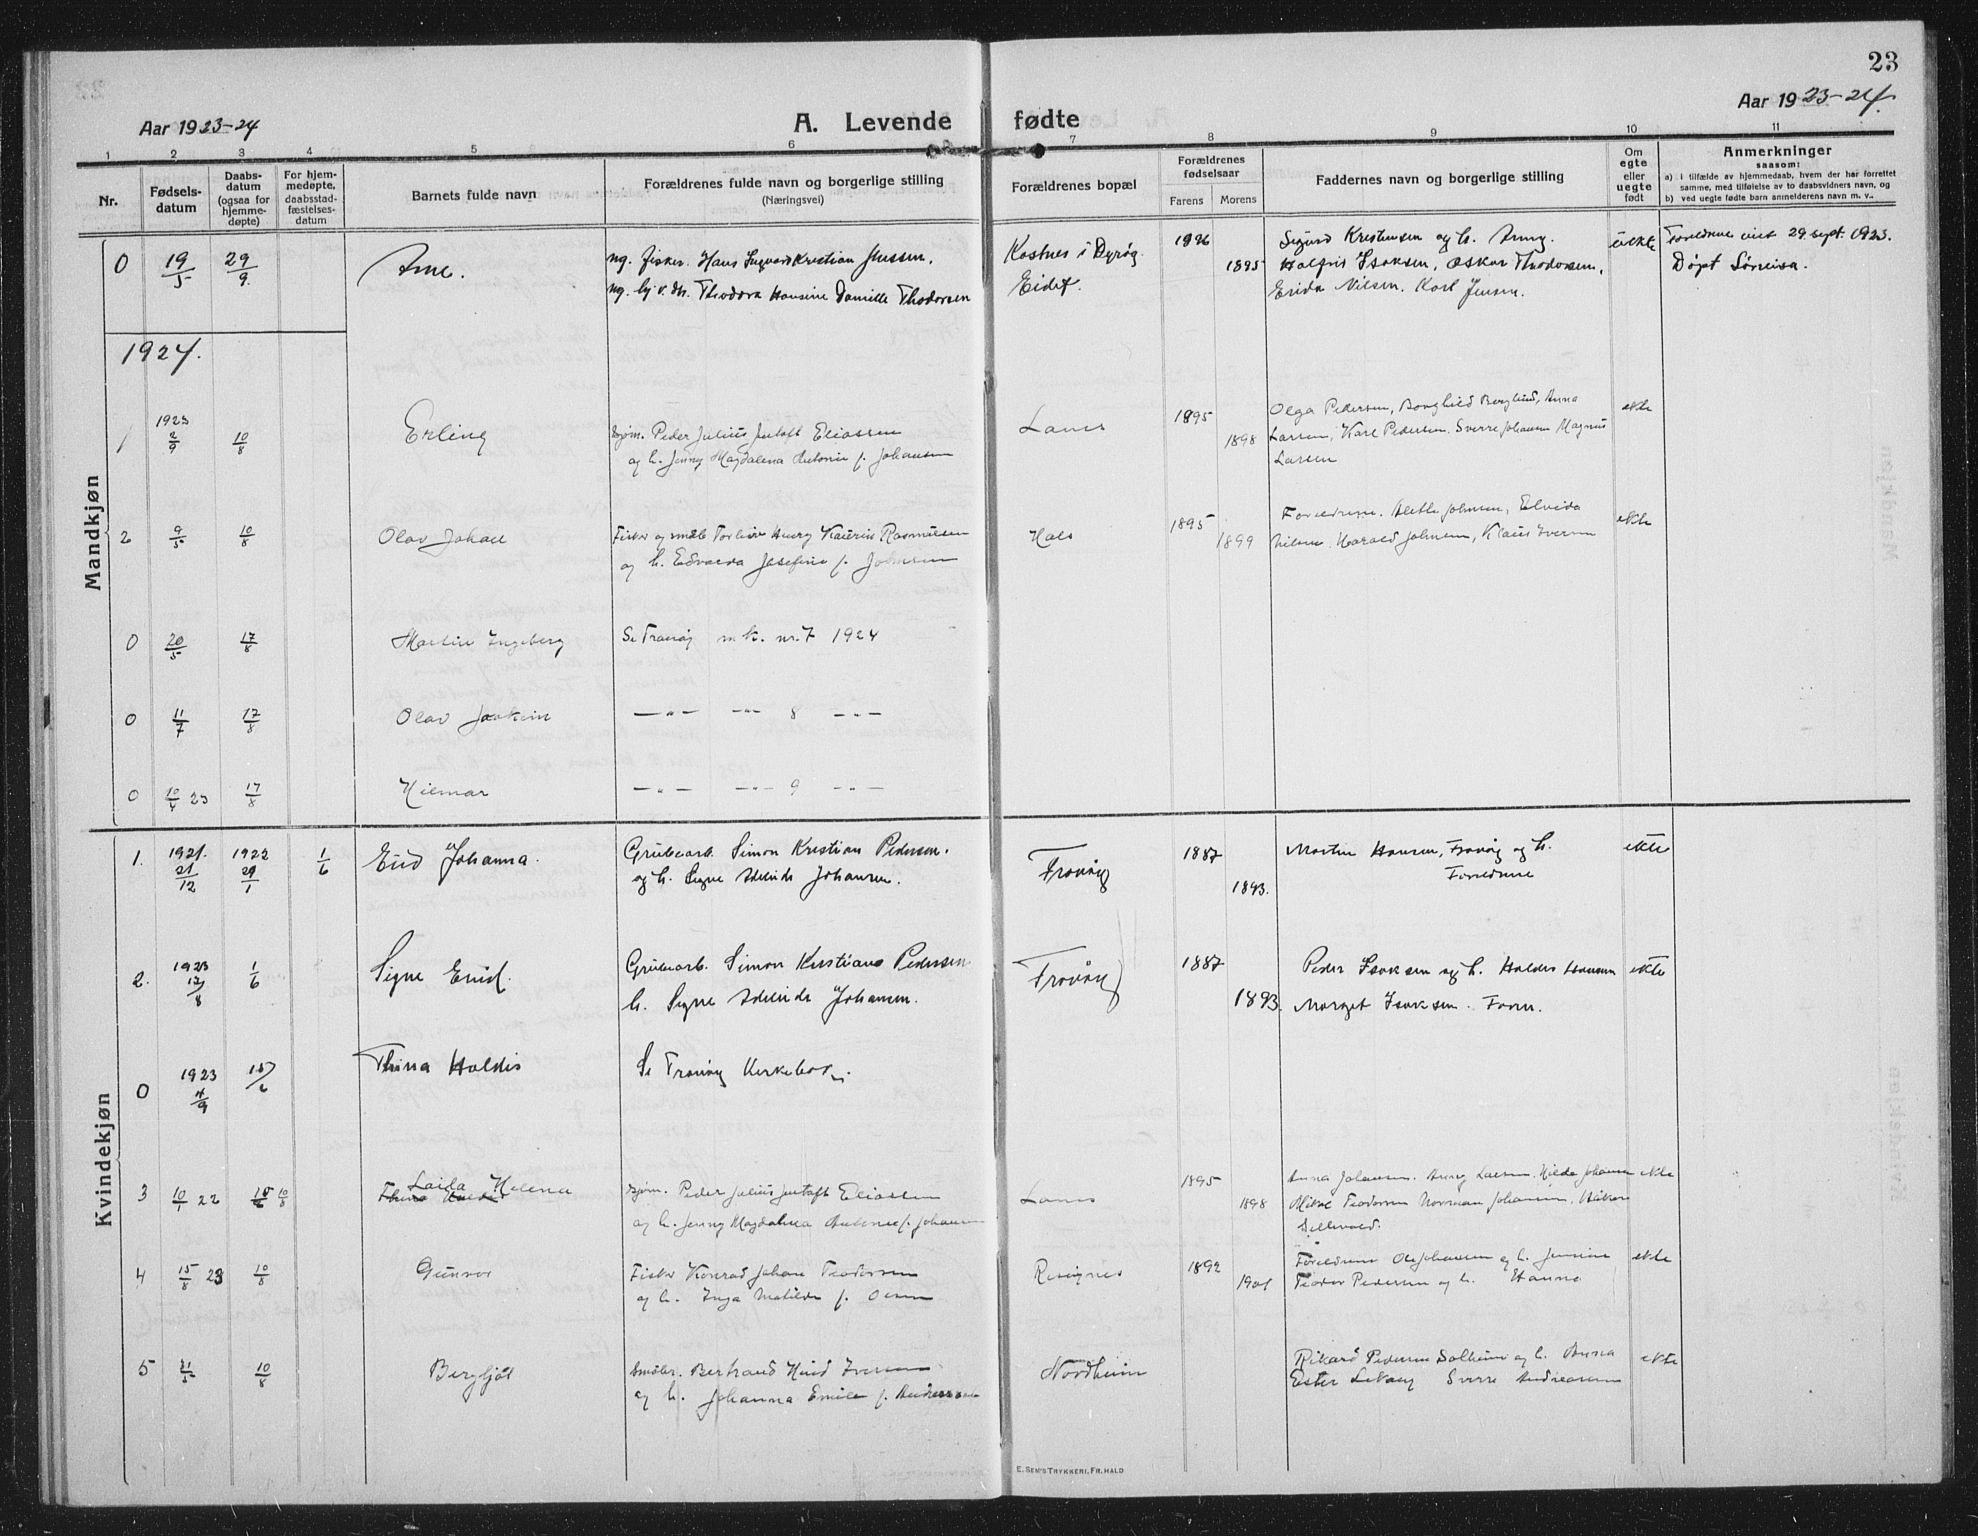 23
Aar 1923-24
A. Levende fødte
Aar 1923-24.
1 2 3 4 5 6 7 8 9 10 11
Nr.
Fødsels-
datum
Daabs-
datum
(ogsaa for
hjemme-
døpte)
For hjem-
medøpte,
daabsstad-
fæstelses-
datum
Barnets fulde navn
Forældrenes fulde navn og borgerlige stilling
(Næringsvei)
Forældrenes bopæl
Forældrenes
fødselsaar
Farens Morens
Faddernes navn og borgerlige stilling
Om
egte
eller
uegte
født
Anmerkninger
saasom:
a) i tilfælde av hjemmedaab, hvem der har forrettet
samme, med tilføielse av to daabsvidners navn, og
b) ved uegte fødte barn anmelderens navn m. v..
Mandkjøn
0 19/5 29/9 Arne. ug. fisker. Hans Ingvard Kristian Jenssen. Kastnes i Dyrøy. 1896 Sigurd Kristensen og h. Anny. uekte Foreldrene viet 29 sept. 1923.
ug. Theodora Hansine Danielle Thodorsen Eidet. 1895 Halfrid Isaksen, Oskar Thodorsen, Døpt Sørreisa.
Erida Nilsen. Karl Jensen.
1924.
1 1923 2/9 10/8 Erling Peder Julius Eliassen 1895 Olga Pedersen, Borghild Berglund, Anna ekte
og h. Jenny Magdalena Antonie f. Johansen 1898 Larsen, Karl Pedersen. Sverre Johansen Magnus
Larsen
2 9/5 10/8 Olav Johan Fisker og småb. Henry Rasmussen Hals 1895 Foreldrene. Johnsen, Elvida ekte
og h. Edvarda Josefine f. Johnsen 1899 Nilsen. Harald Johnsen, Klaus Iversen
0 20/5 17/8 Martin Ingeberg Se Tranøy m.k. nr. 7 1924
0 11/7 17/8 Olav Joakim —„— —„— 8 —„—
0 10/4 23 17/8 Hilmar —„— —„— 9 —„—
Kvindekjøn
1. 1921. 21/12 1922 29/1 1/6 Eud Johanna. Grubearb. Simon Kristian Pedersen. Frovåg 1887 Martin Hansen, Frovåg og h. ekte
og h. Signe Adelinde Johansen. 1893. Foreldrene
2. 1923 12/8 1/6 Signe Enid. Grubearb. Simon Kristians Pedersen Frovåg 1887 Peder Isaksen og h. Haldis Hansen ekte
h. Signe Adelinde Johansen. 1893. Marget Isaksen. Form.
0 1923 4/9 15/6 Thina Haldis Se Tranøy Kirkebok.
3 10/1 22 10/8 Laila Helena Peder Julius Eliassen 1895 Anna Johansen. Larsen. Hilda Johansen ekte
og h. Jenny Magdalena Antonie f. Johansen 1898 Mikal Teodorsen Johansen,
4 15/8 23 10/8 Gunvor Fisker Konrad Johan Teodorsen 1892 Foreldrene Ole Johansen og h. Jensine ekte
og h. Inga Matilde f. Olsen 1901 Teodor Pedersen og h. Hanna
5 21/5 10/8 Bergljot Småbr. Bertrand Iversen Nordheim Rikard Pedersen Solheim og h. Anna ekte
og h. Johanna Emilie f. Andreassen Ester Sverre Andreassen
E. SEM'S TRYKKERI, FR.HALD